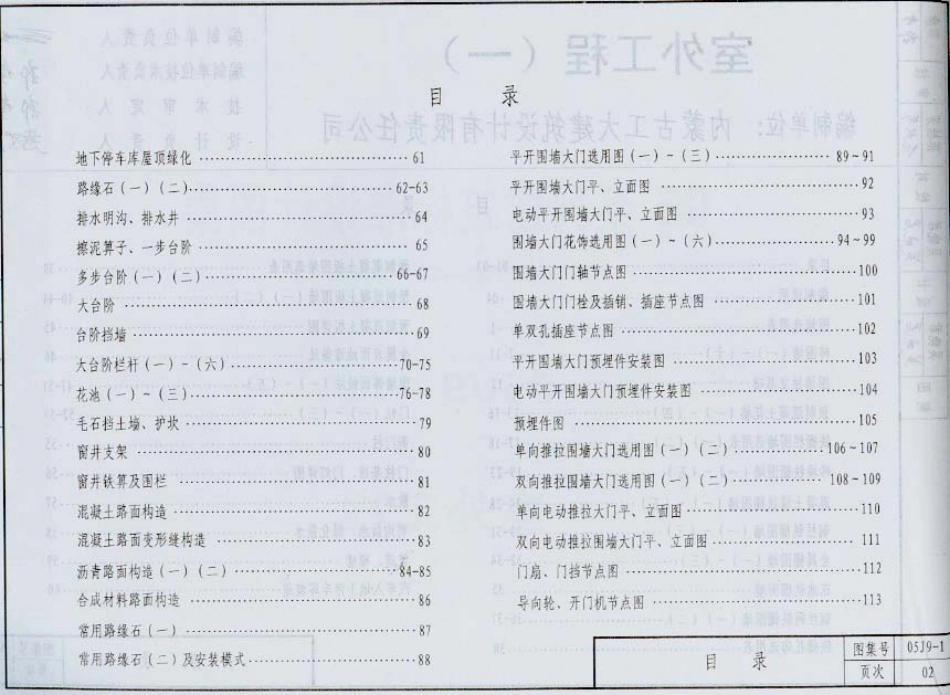 目 录
地下停车库屋顶绿化 61
路缘石(一)(二) 62-63
排水明沟、排水井 64
擦泥箅子、一步台阶 65
多步台阶(一)(二) 66-67
大台阶 68
台阶挡墙 69
大台阶栏杆(一)~(六) 70-75
花池(一)~(三) 76-78
毛石挡土墙、护坎 79
窗井支架 80
窗井铁箅及围栏 81
混凝土路面构造 82
混凝土路面变形缝构造 83
沥青路面构造(一)(二) 84-85
合成材料路面构造 86
常用路缘石(一) 87
常用路缘石(二)及安装模式 88
平开围墙大门选用图(一)~(三) 89~91
平开围墙大门平、立面图 92
电动平开围墙大门平、立面图 93
围墙大门花饰选用图(一)~(六) 94~99
围墙大门门轴节点图 100
围墙大门门栓及插销、插座节点图 101
单双孔插座节点图 102
平开围墙大门预埋件安装图 103
电动平开围墙大门预埋件安装图 104
预埋件图 105
单向推拉围墙大门选用图(一)(二) 106~107
双向推拉围墙大门选用图(一)(二) 108~109
单向电动推拉大门平、立面图 110
双向电动推拉围墙大门平、立面图 111
门扇、门挡节点图 112
导向轮、开门机节点图 113
目 录
图集号 05J9-1
页次 02